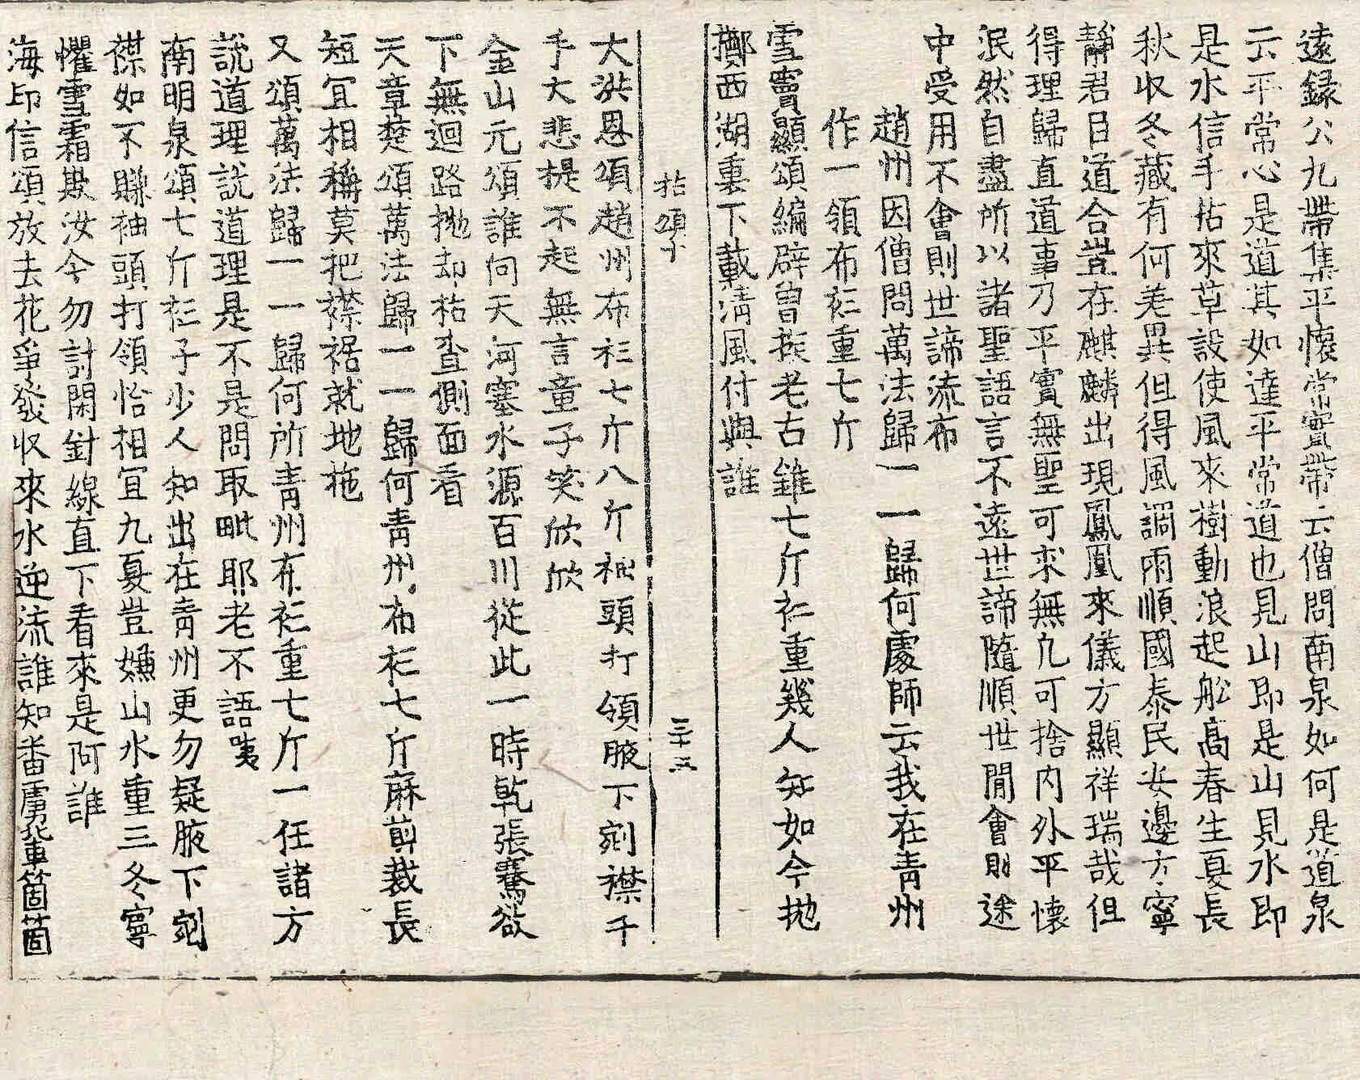 遠録公九帶集平懷常實帶云僧問南泉如何是道泉
云平常心是道其如達平常道也見山即是山見水即
是水信手拈來草設使風來樹動浪起船髙春生夏長
秋收冬藏有何差異但得風調雨順國泰民安邊方寧
靜君臣道合豈在麒麟出現鳳凰來儀方顯祥瑞哉但
得理歸直道事乃平實無聖可求無凢可捨内外平懷
泯然自盡所以諸聖語言不遠世諦隨順世間會則途
中受用不會則世諦流布
趙州因僧問萬法歸一一歸何處師云我在青州
作一領布衫重七斤
雪竇顯頌編辟曾挨老古錐七斤衫重幾人知如今抛
擲西湖裏下載淸風付與誰
拈頌十
三十五
大洪恩頌趙州布衫七斤八斤袖頭打領腋下剜襟千
手大悲提不起無言童子笑欣欣
金山元頌誰向天河塞水源百川從此一時乾張騫欲
下無迴路抛却枯查側面看
天章楚頌萬法歸一一歸何青州布衫七斤麻剪裁長
短冝相稱莫把襟裾就地拖
又頌萬法歸一一歸何所青州布衫重七斤一任諸方
説道理説道理是不是問取毗耶老不語咦
南明泉頌七斤衫子少人知出在青州更勿疑腋下剜
襟如不賺袖頭打領恰相冝九夏豈嫌山水重三冬寧
懼雪霜欺汝今勿討閑針線直下看來是阿誰
海印信頌放去花爭發收來水逆流誰知番虜輩箇箇